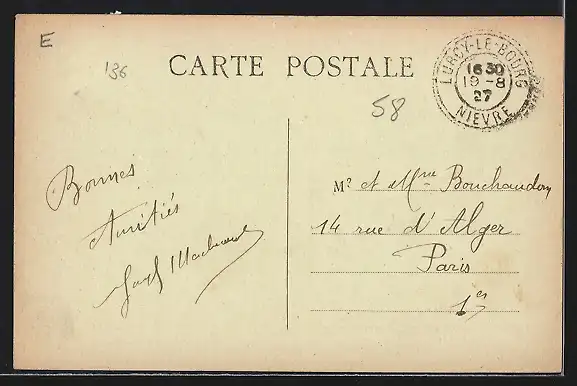 E
136
CARTE POSTALE
58
LURCY-LE-BOURG
16 30
19 - 8
27
NIEVRE
Bonnes
Amitiés
M? et Mme Bouchaudon
14 rue d'Alger
Paris
1er